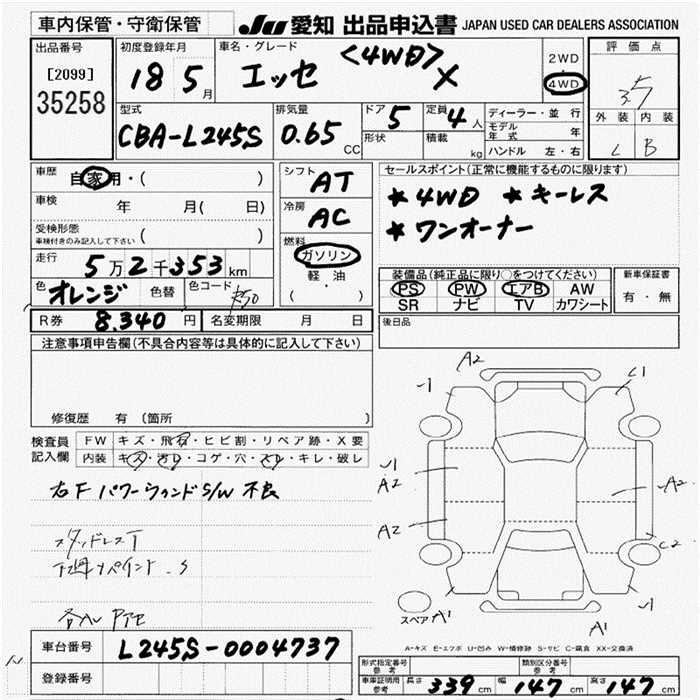 車内保管・守衛保管
JU 愛知 出品申込書 JAPAN USED CAR DEALERS ASSOCIATION
出品番号
[2099]
35258
初度登録年月
18 5月
車名・グレード
エッセ <4WD> X
2WD
4WD
評価点
3.5
外装 内装
B
型式
CBA-L245S
排気量
0.65 CC
ドア 5
形状
定員 4 人
積載 kg
ディーラー・並行
モデル年式 年
ハンドル 左・右
車歴 自家用・( )
車検 年 月( 日)
受検形態
車検付きのみ記入して下さい ( )
走行 5万2千353km
色 オレンジ 色替 色コード
シフト AT
冷房 AC
燃料
ガソリン
軽・油
( )
セールスポイント(正常に機能するものに限ります)
★4WD ★キーレス
★ワンオーナー
装備品(純正品に限り○をつけてください)
PS PW エアB AW
SR ナビ TV カワシート
新車保証書
有・無
R券 8.340 円 名変期限 月 日
後日品
注意事項申告欄(不具合内容等は具体的に記入して下さい)
修復歴 有 (箇所 )
検査員記入欄
FW キズ・飛石・ヒビ割・リペア跡・X要
内装 キズ・汚れ・コゲ・穴・スレ・キレ・破レ
右F パワーウィンドS/W 不良
スタッドレスT
A2
-1
C1
A2
A2
A2
C2
スペア A1
A1
-1
A-キズ E-エクボ U-凹み W-補修跡 S-サビ C-腐食 XX-交換済
車台番号 L245S-0004737
登録番号
形式指定番号 参考
類別区分番号 参考
車庫証明用 参考 長さ 339 cm 幅 147 cm 高さ 147 cm